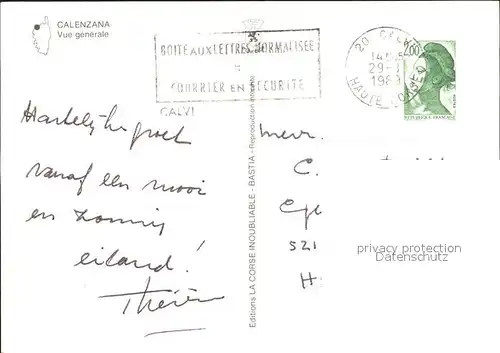 CALENZANA
Vue générale
BOITE AUX LETTRES NORMALISEE
=
COURRIER EN SECURITE
CALVI
20 CALVI
29-
HAUTE CORSE
2,00
REPUBLIQUE FRANÇAISE
Hartelijke groet
vanaf een mooi
en zonnig
eiland!
Thérèse
Editions LA CORSE INOUBLIABLE - BASTIA - Reproduction
mevr.
C.
521
H
privacy protection
Datenschutz